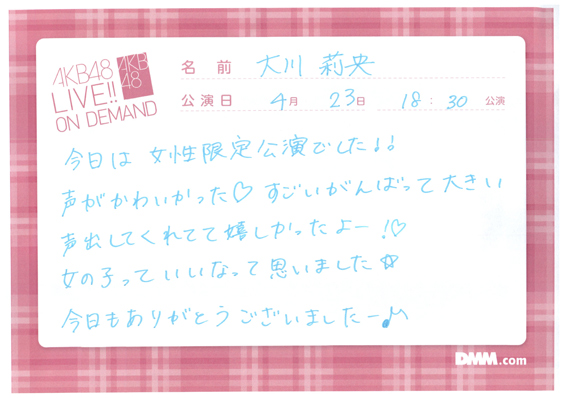 AKB48
LIVE!!
ON DEMAND
AKB
48
名前 大川 莉央
公演日 4月 23日 18:30 公演
今日は 女性限定公演でした♩♩
声がかわいかった♡ すごいがんばって大きい
声出してくれてて嬉しかったよー!♡
女の子っていいなって思いました☆
今日もありがとうございましたー♪
DMM.com